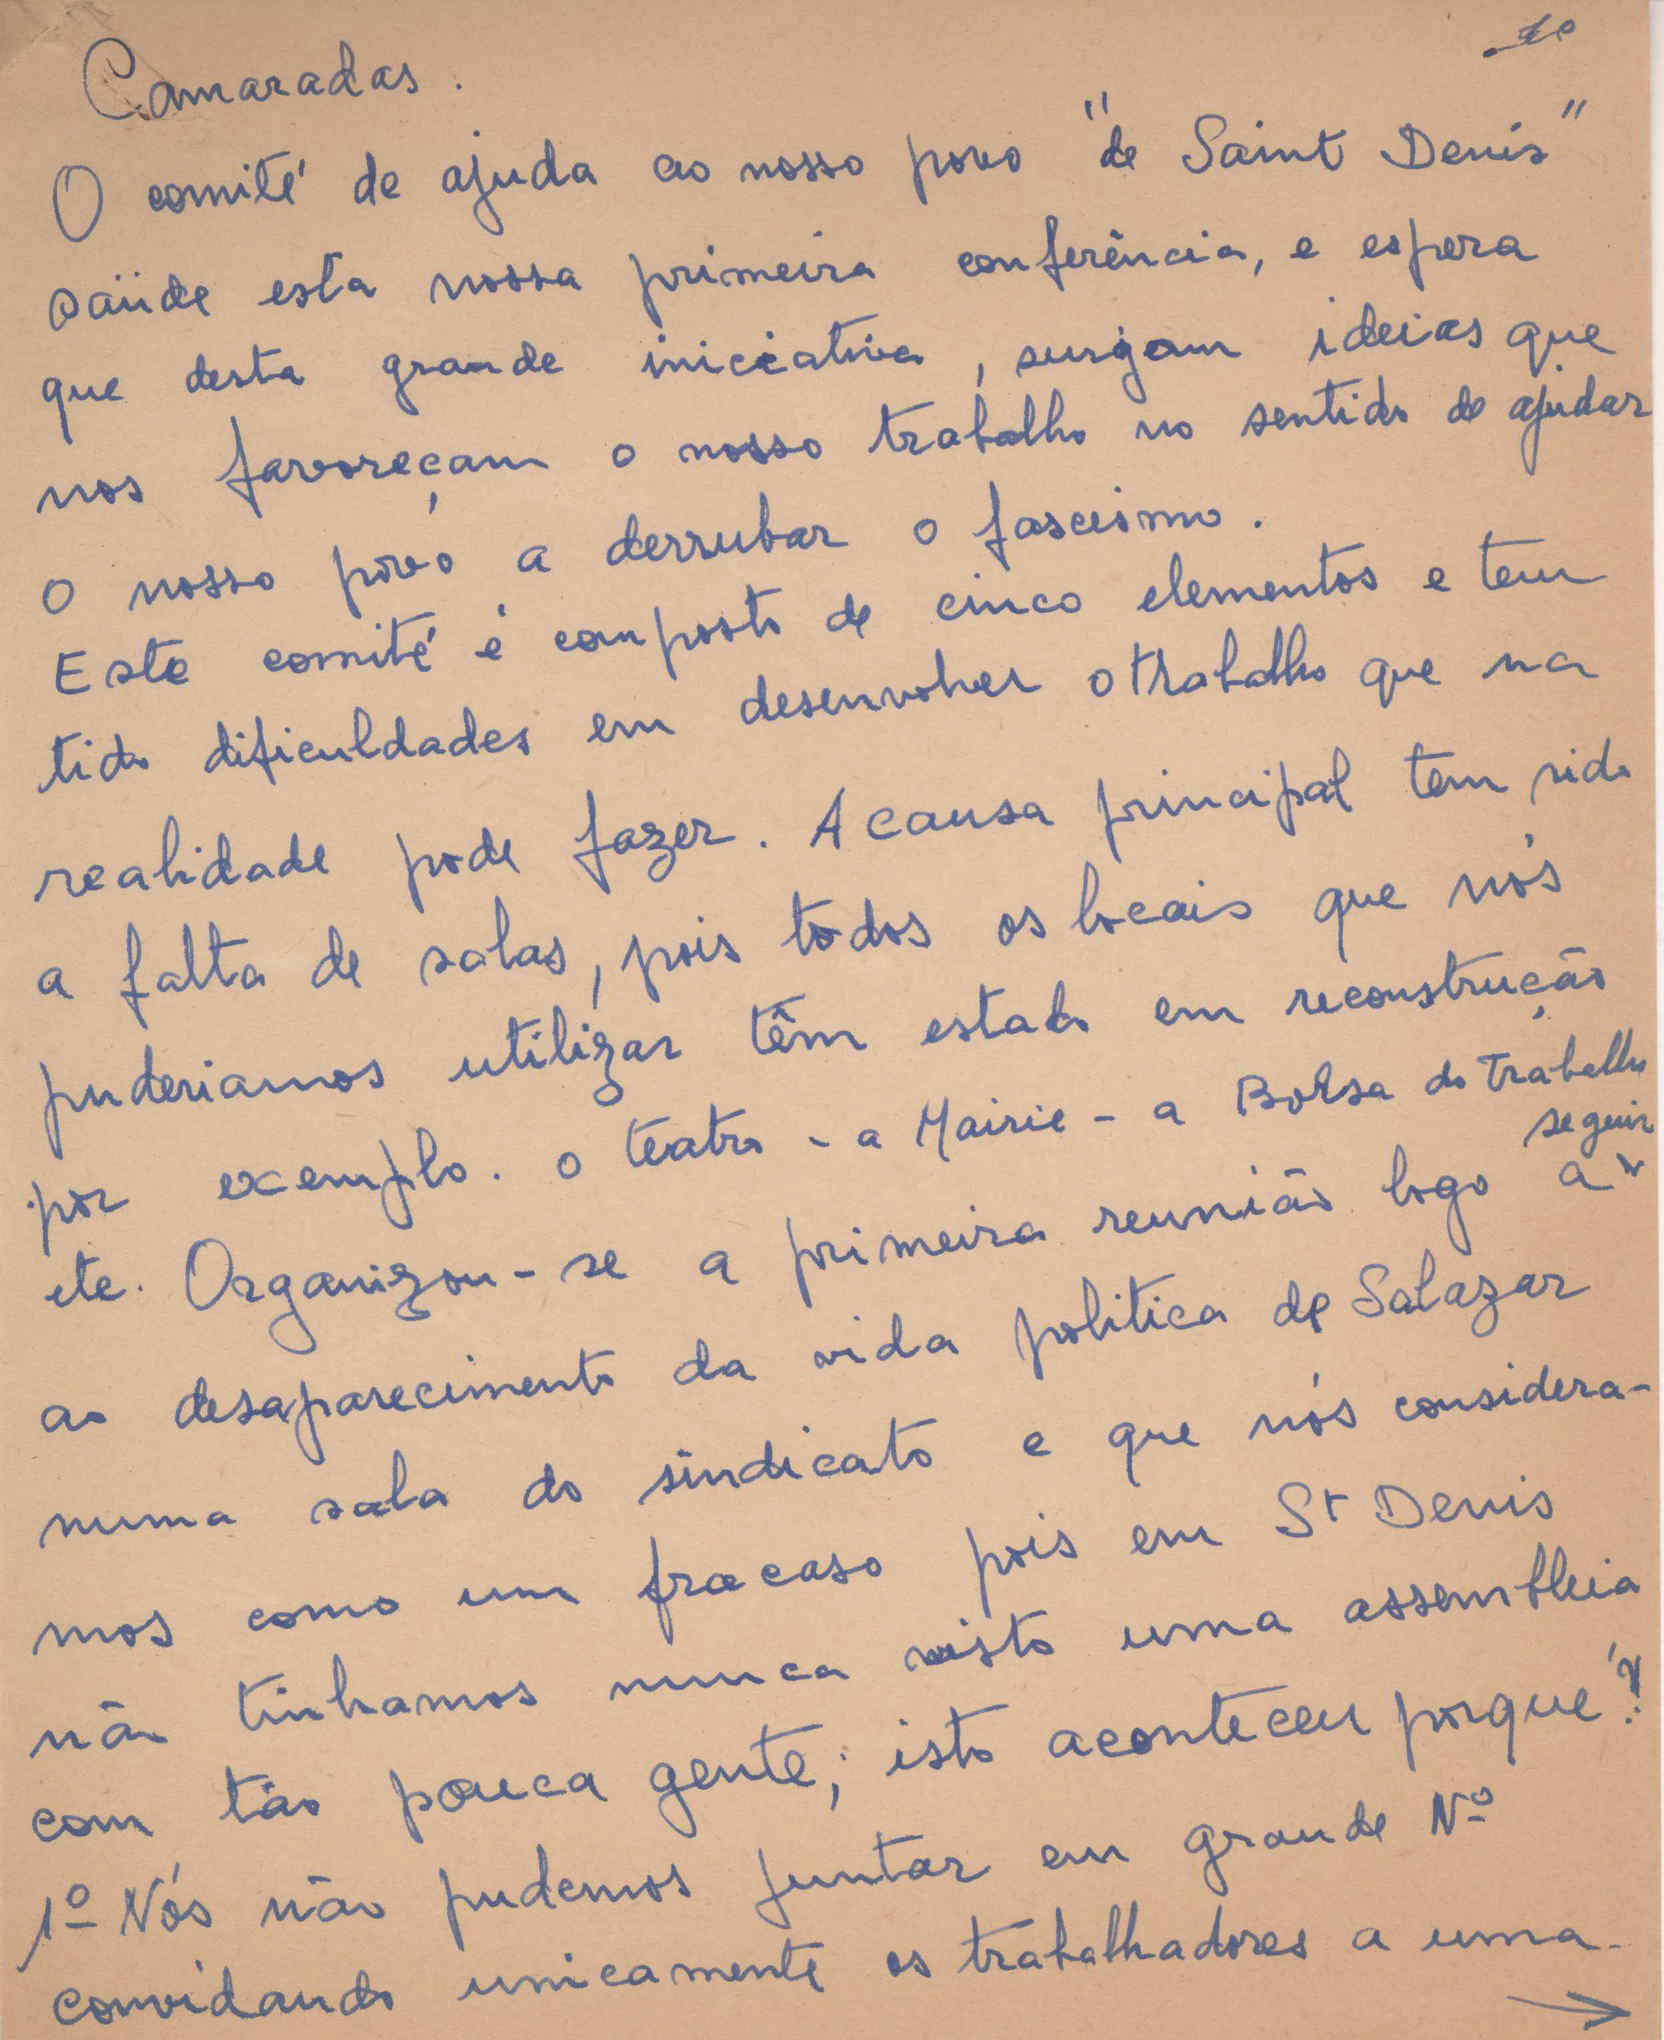 Camaradas.
O comité de ajuda ao nosso povo "de Saint Denis"
saüde esta nossa primeira conferência, e espera
que desta grande iniciativa, surgam ideias que
nos favoreçam o nosso trabalho no sentido de ajudar
o nosso povo a derrubar o fascismo.
Este comité é composto de cinco elementos e tem
tido dificuldades em desenvolver o trabalho que na
realidade pode fazer. A causa principal tem sido
a falta de salas, pois todos os locais que nós
puderiamos utilizar têm estado em reconstrução
por exemplo. o teatro - a Mairie - a Bolsa do Trabalho
etc. Organizou-se a primeira reunião logo a seguir
ao desaparecimento da vida politica de Salazar
numa sala do sindicato e que nós considera-
mos como um fracaso pois em St Denis
não tinhamos nunca visto uma assembleia
com tão pouca gente; isto aconteceu porque?
1º Nós não pudemos juntar em grande Nº
convidando unicamente os trabalhadores a uma